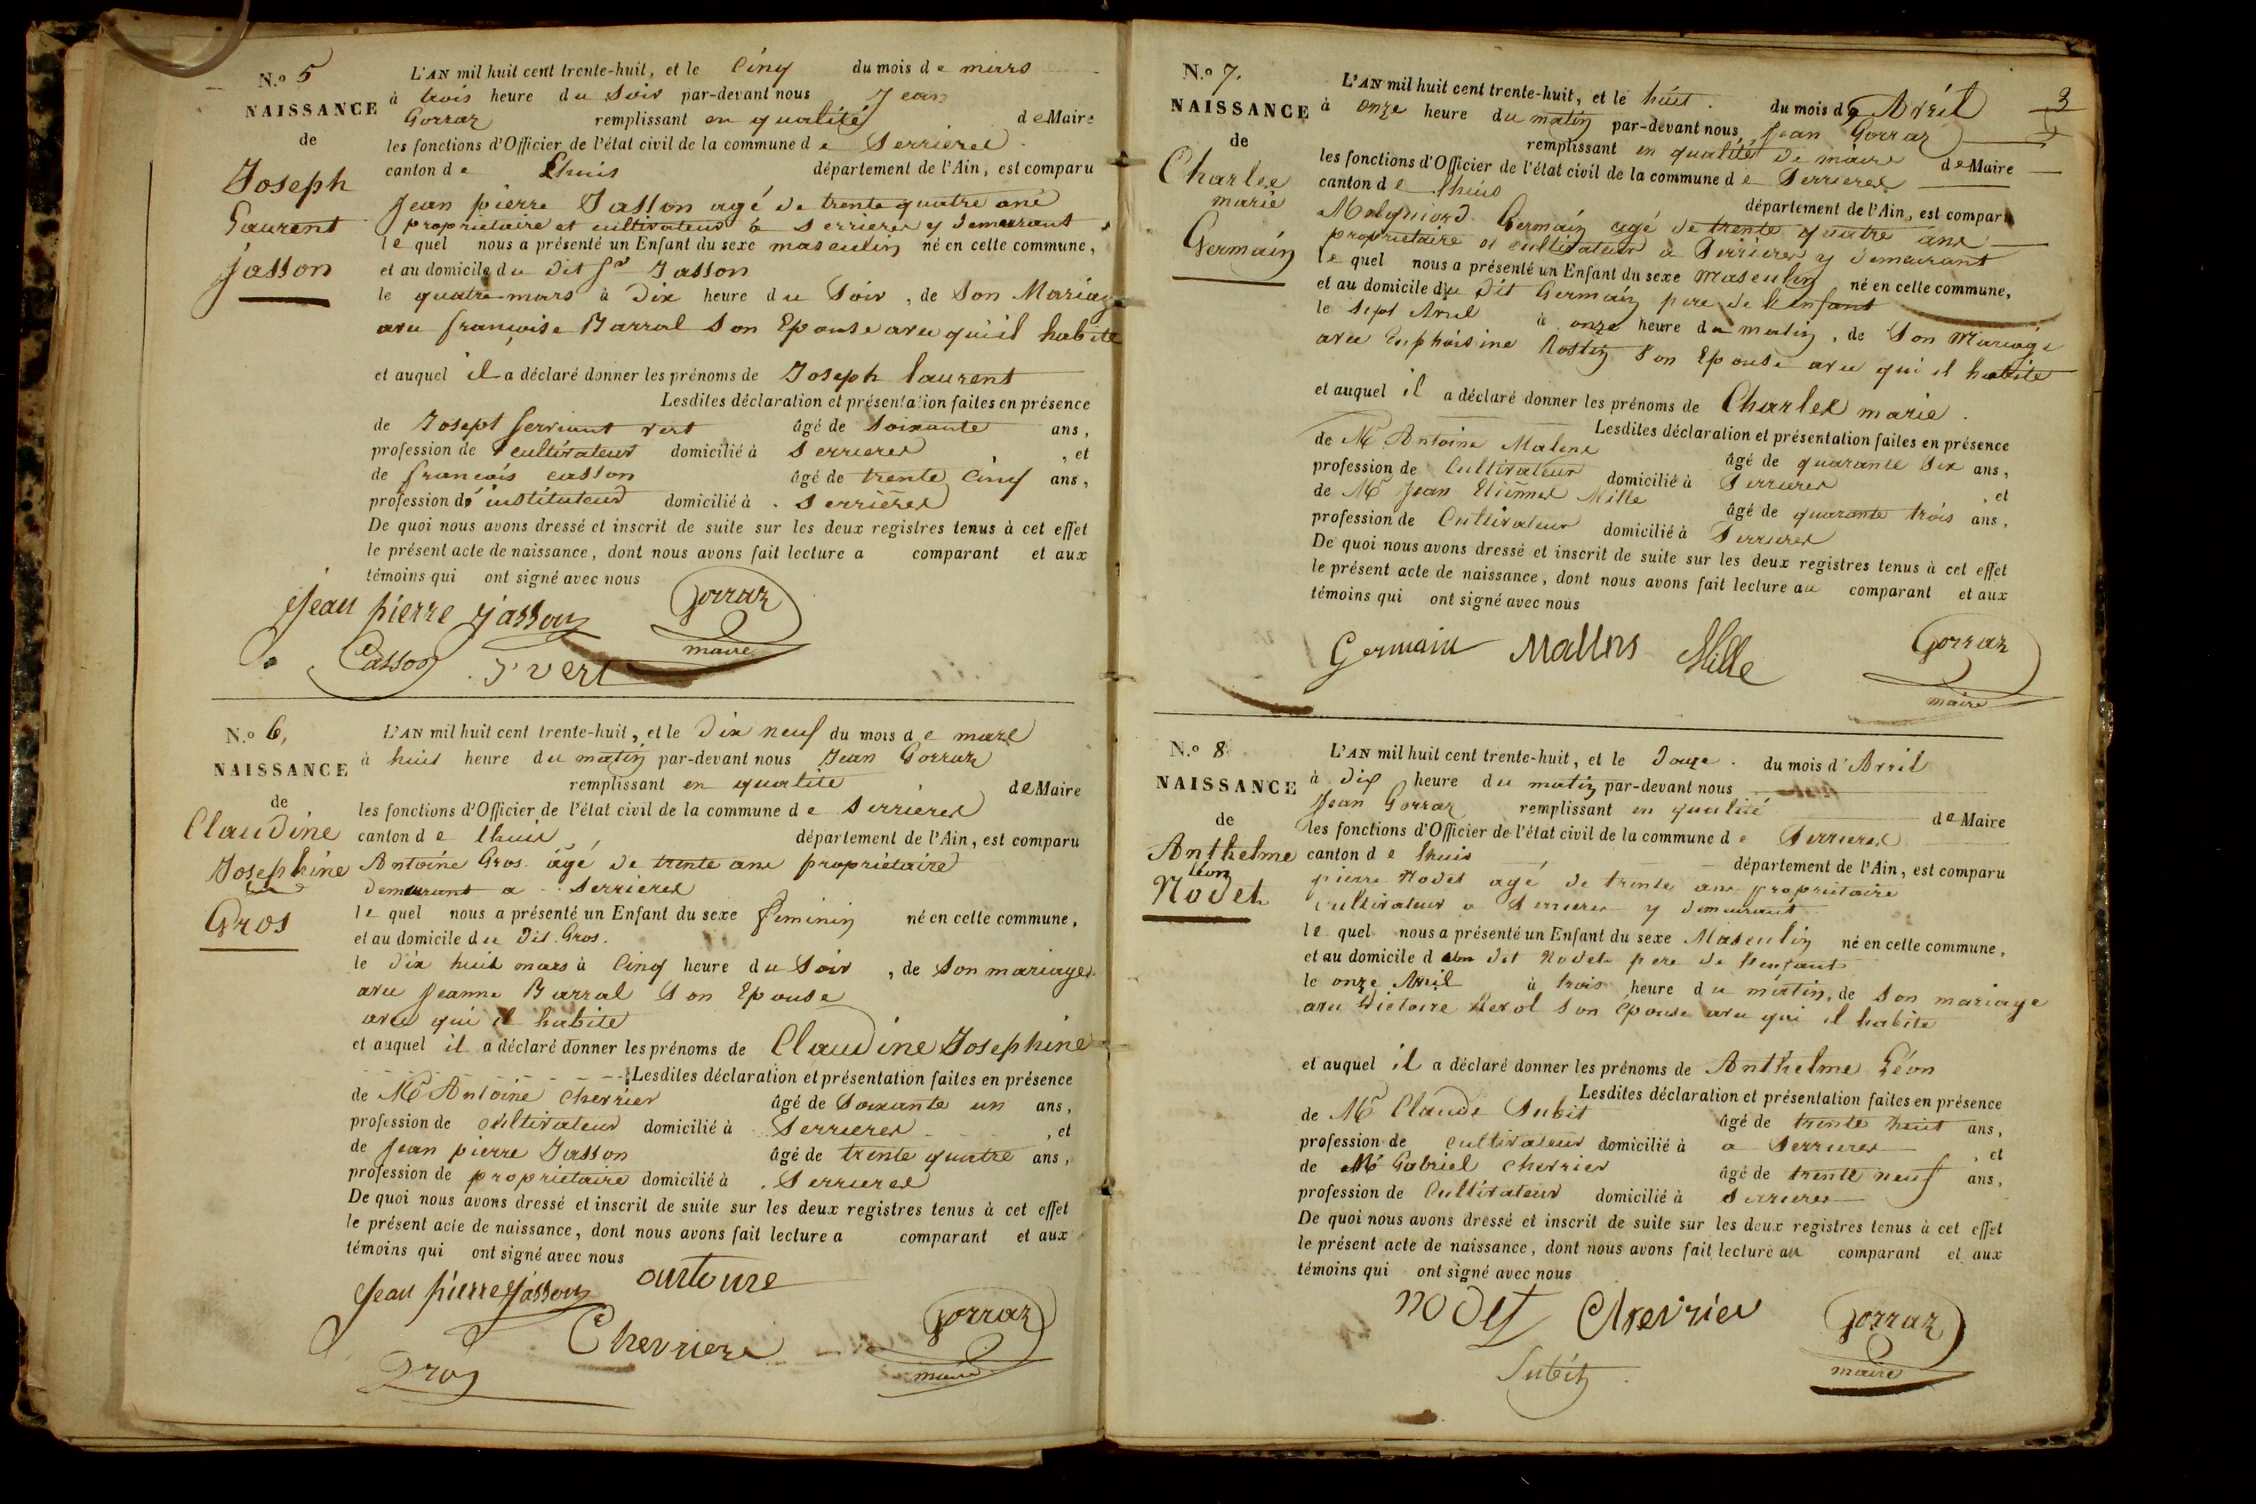 N.º 5
NAISSANCE
de
Joseph
Laurent
Jasson
L'AN mil huit cent trente-huit, et le Cinq du mois de mars
à trois heure du Soir par-devant nous Jean
Gorraz remplissant en qualité de Maire
les fonctions d'Officier de l'état civil de la commune de Serrieres
canton de Lhuis département de l'Ain, est comparu
Jean pierre Jasson agé de trente quatre ans
proprietaire et cultivateur à Serrieres y demeurant
lequel nous a présenté un Enfant du sexe masculin né en cette commune,
et au domicile du dit Sr Jasson
le quatre mars à Dix heure du Soir, de Son Mariage
avec françoise Barral Son Epouse avec qu'il habite
et auquel il a déclaré donner les prénoms de Joseph laurent
Lesdites déclaration et présentation faites en présence
de Josept Servant vert âgé de Soixante ans,
profession de cultivateur domicilié à Serrieres, et
de françois casson âgé de trente Cinq ans,
profession de instituteur domicilié à Serrières
De quoi nous avons dressé et inscrit de suite sur les deux registres tenus à cet effet
le présent acte de naissance, dont nous avons fait lecture a comparant et aux
témoins qui ont signé avec nous
Jean pierre jasson Gorraz
maire
Casson J vert
N.º 6,
NAISSANCE
de
Claudine
Josephine
Gros
L'AN mil huit cent trente-huit, et le Dix neuf du mois de mars
à huit heure du matin par-devant nous Jean Gorraz
remplissant en qualite de Maire
les fonctions d'Officier de l'état civil de la commune de Serrieres
canton de lhuis département de l'Ain, est comparu
Antoine Gros âgé de trente ans propriétaire
demeurant a Serrieres
lequel nous a présenté un Enfant du sexe feminin né en cette commune,
et au domicile du Dit. Gros.
le dix huit mars à Cinq heure du Soir, de Son mariage
avec Jeanne Barral Son Epouse
avec qui il habite
et auquel il a déclaré donner les prénoms de Claudine Josephine
Lesdites déclaration et présentation faites en présence
de Mr Antoine cherrier âgé de Soixante un ans,
profession de cultivateur domicilié à Serrieres, et
de Jean pierre Jasson âgé de trente quatre ans,
profession de propriétaire domicilié à Serrieres
De quoi nous avons dressé et inscrit de suite sur les deux registres tenus à cet effet
le présent acte de naissance, dont nous avons fait lecture a comparant et aux
témoins qui ont signé avec nous
Jean pierre jasson antoine
Chevrier Gorraz
Gros maire
3
N.º 7.
NAISSANCE
de
Charles
marie
Germain
L'AN mil huit cent trente-huit, et le huit. du mois de Avril
à onze heure du matin par-devant nous Jean Gorraz
remplissant en qualité de maire de Maire
les fonctions d'Officier de l'état civil de la commune de Serrieres
canton de lhuis département de l'Ain, est comparu
Germain agé de trente quatre ans
proprietaire et cultivateur a Serrieres y demeurant
lequel nous a présenté un Enfant du sexe Masculin né en cette commune,
et au domicile du dit Germain pere de l'enfant
le Sept Avril à onze heure du matin, de Son Mariage
avec Euphoisine Rostin Son Epouse avec qui il habite
et auquel il a déclaré donner les prénoms de Charles marie.
Lesdites déclaration et présentation faites en présence
de Mr Antoine Malens âgé de quarante Six ans,
profession de Cultivateur domicilié à Serrieres, et
de Mr Jean Etiennes Mille âgé de quarante trois ans,
profession de Cultivateur domicilié à Serrieres
De quoi nous avons dressé et inscrit de suite sur les deux registres tenus à cet effet
le présent acte de naissance, dont nous avons fait lecture au comparant et aux
témoins qui ont signé avec nous
Germain Mallns Mille Gorraz
maire
N.º 8
NAISSANCE
de
Anthelme
léon
Nodet
L'AN mil huit cent trente-huit, et le Douze. du mois d'Avril
à dix heure du matin par-devant nous
Jean Gorraz remplissant en qualité de Maire
les fonctions d'Officier de l'état civil de la commune de Serrieres
canton de lhuis département de l'Ain, est comparu
pierre Nodet agé de trente ans propriétaire
cultivateur a Serrieres y demeurant
lequel nous a présenté un Enfant du sexe Masculin né en cette commune,
et au domicile d dit Nodet pere de l'enfant
le onze Avril à trois heure du matin, de Son mariage
avec Victoire Revol Son épouse avec qui il habite
et auquel il a déclaré donner les prénoms de Anthelme Léon
Lesdites déclaration et présentation faites en présence
de Mr Claude Subit âgé de trente huit ans,
profession de cultivateur domicilié à a Serrieres, et
de Mr Gabriel cherrier âgé de trente neuf ans,
profession de Cultivateur domicilié à Serrieres
De quoi nous avons dressé et inscrit de suite sur les deux registres tenus à cet effet
le présent acte de naissance, dont nous avons fait lecture au comparant et aux
témoins qui ont signé avec nous
nodet Chevrier Gorraz
Subit maire